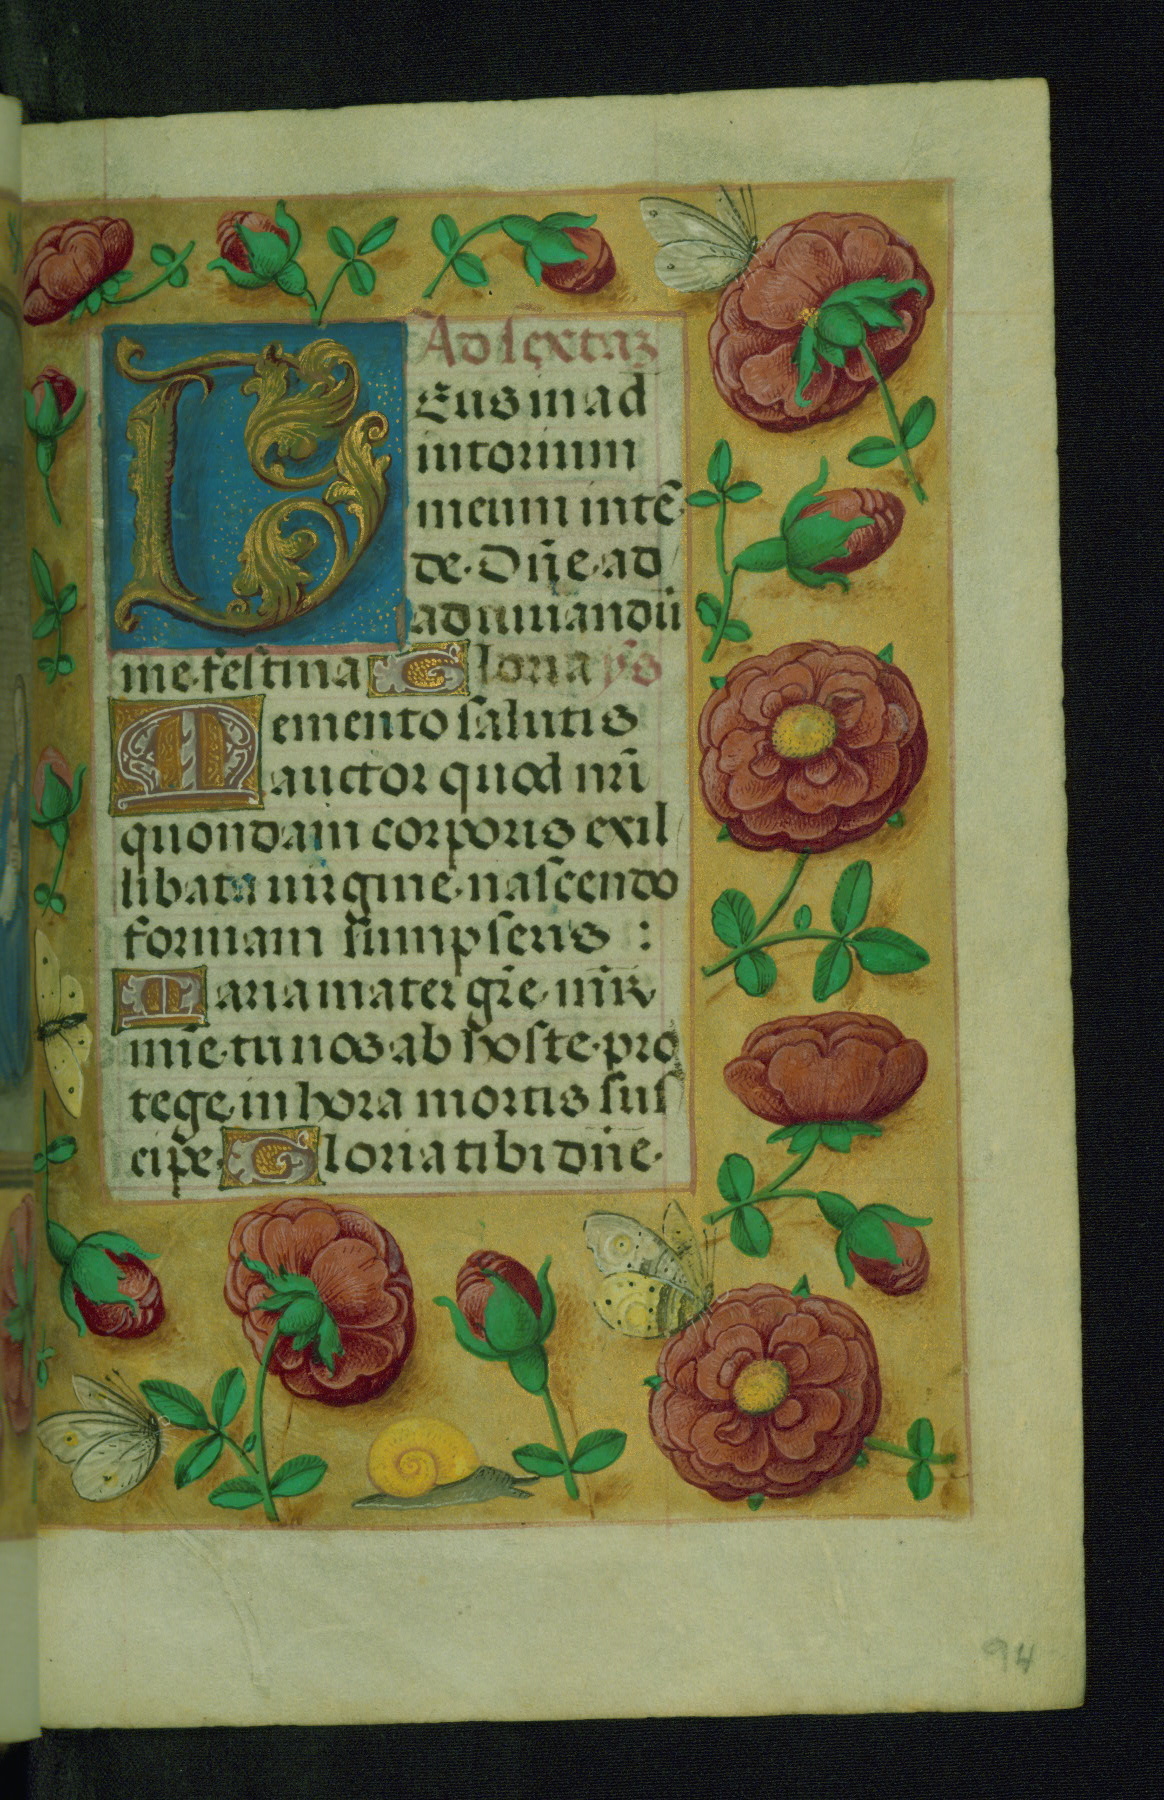 Ad sextaʒ
Deus in ad
iutorium
meum intē
de. Dn̄e. ad
adiuuandū
me festina Gloria ps̄
Memento salutis
auctor quod nr̄i
quondam corporis exil
libata uirgine. nascendo
formam sumpseris :
Maria mater gr̄e. mr̄
mīe. tu nos. ab hoste. pro
tege. in hora mortis sus
cip̄e. Gloria tibi dn̄e.
94